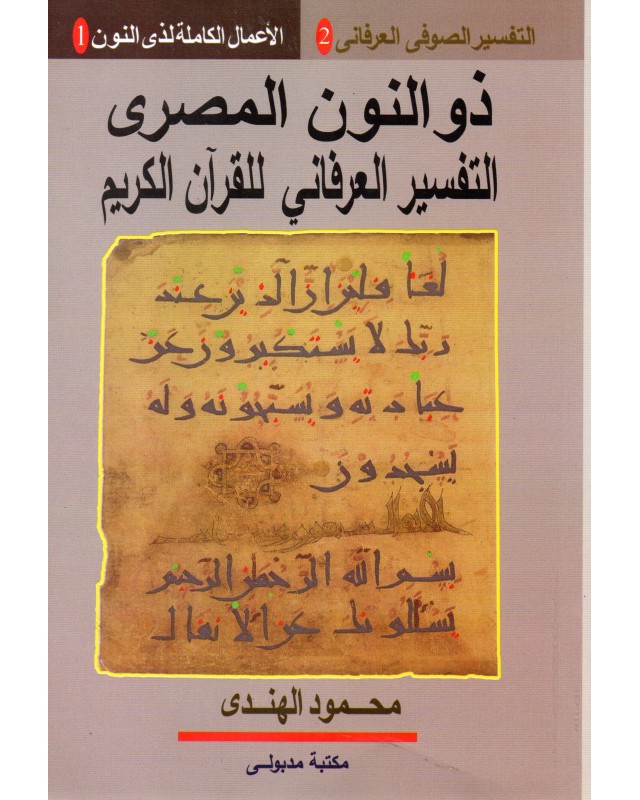 التفسير الصوفى العرفانى 2
الأعمال الكاملة لذى النون 1
ذو النون المصرى
التفسير العرفاني للقرآن الكريم
لغفلين ان الذين عند
ربك لا يستكبرون عن
عبادته و يسبحونه وله
يسجدون
بسم الله الرحمن الرحيم
يسئلونك عن الانفال
محمود الهندى
مكتبة مدبولى